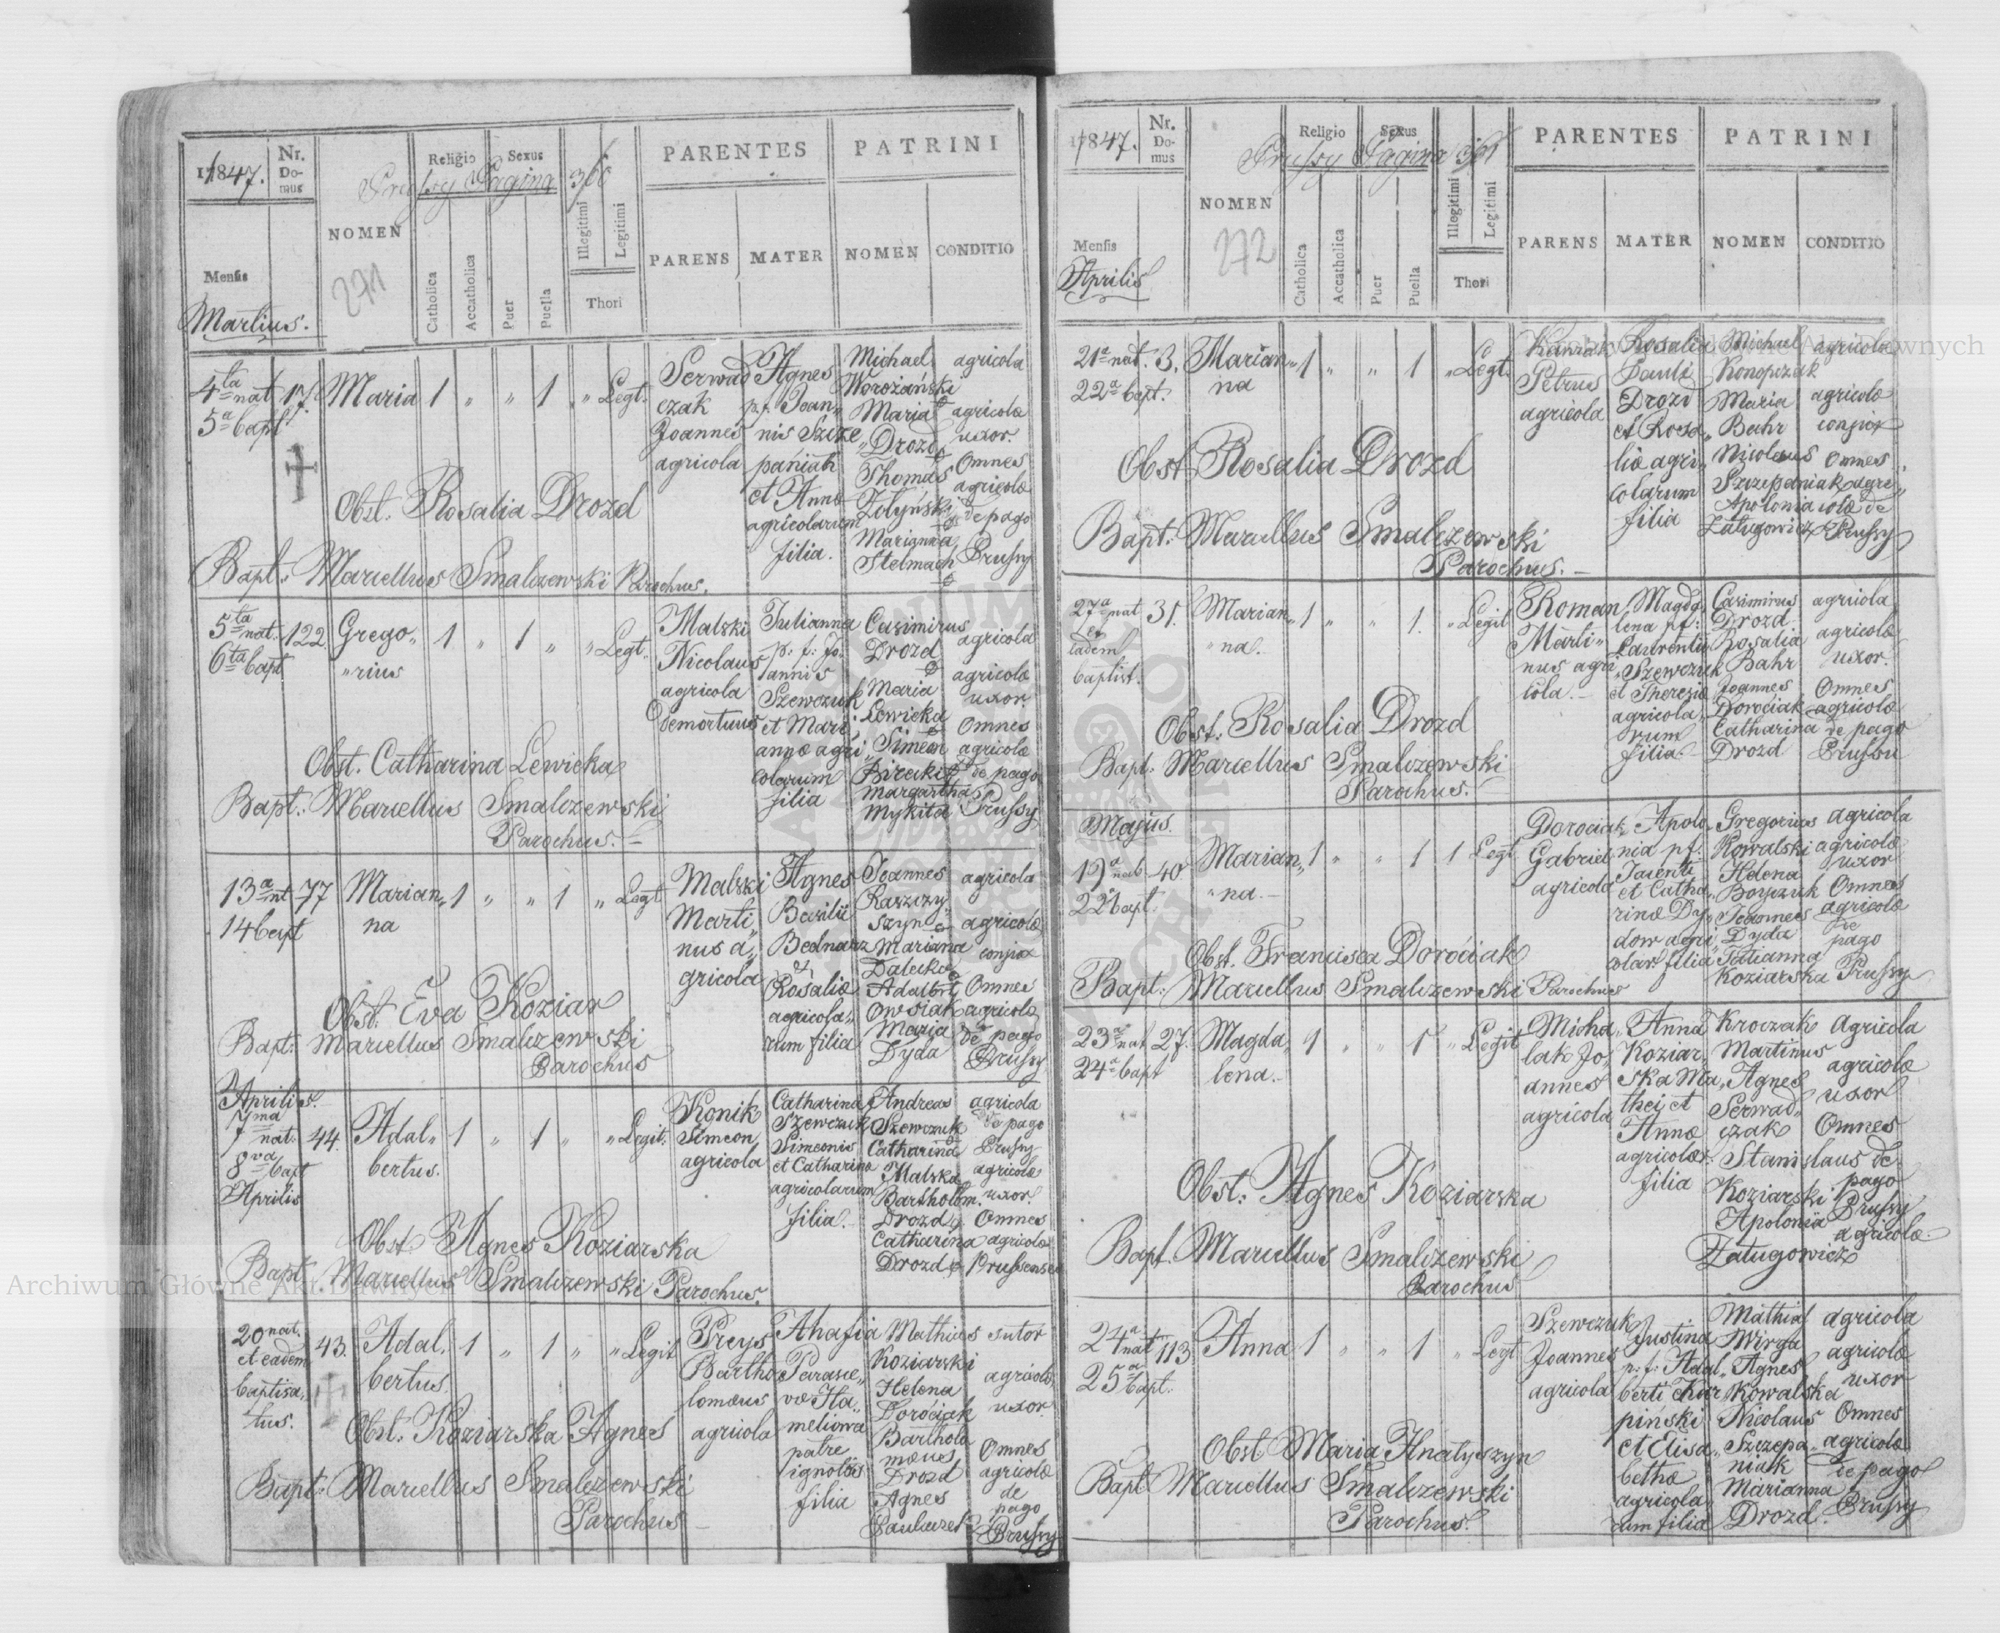 1847.
Nr. Domus
Prussy Pagina 
NOMEN
271
Religio
Sexus
Catholica
Accatholica
Puer
Puella
Illegitimi
Legitimi
Thori
PARENTES
PATRINI
PARENS
MATER
NOMEN
CONDITIO
Mensis
Martius.
4ta nat
5a bapt
17.
Maria
1 " " 1 " Legt.
Serwad
czak
Joannes
agricola
Agnes
p. f. Joan„
nis Szcze
paniak
et Annæ
agricolarum
filia.
Michael
Worożański
Maria
Drozd
Thomas
Żołyński
Marianna
Stelmach
agricola
agricolæ
uxor.
Omnes
agricolæ
de pago
Prussy
Obst. Rosalia Drozd
Bapt: Marcellus Smalczewski Parochus.
5ta nat.
6ta bapt
122
Grego„
„rius
1 " 1 " " Legt.
Malski
Nicolaus
agricola
demortuus
Julianna
p: f: Jo„
annis
Szewczuk
et Mari„
annæ agri„
colarum
filia
Casimirus
Drozd
Maria
Lewicka
Simeon
Birecki
Margartha
Mykita
agricola
agricolæ
uxor.
Omnes
agricolæ
de pago
Prussy
Obst. Catharina Lewicka
Bapt: Marcellus Smalczewski
Parochus.
13a nat
14 bapt
77
Marian„
na
1 " " 1 " Legt
Malski
Marti„
nus a„
gricola
Agnes
Basilii
Bednarz
et
Rosaliæ
agricola„
rum filia
Joannes
Raszczy
szyn
Mariana
Dalecka
Adalbert
Owsiak
Maria
Dyda
agricola
agricolæ
conjox
Omnes
agricolæ
de pago
Prussy
Obst: Eva Koziar
Bapt: Marcellus Smalczewski
Parochus
Aprilis.
7ma nat.
8va bapt
Aprilis
44.
Adal„
bertus.
1 " 1 " " Legit.
Konik
Simeon
agricola
Catharina
Szewczuk
Simeonis
et Catharina
agricolarum
filia.
Andreas
Szewczuk
Catharina
Malska
Bartholom.
Drozd
Catharina
Drozd
agricola
de pago
Prussy
agricolæ
uxor.
Omnes
agricolæ
Prussenses
Obst Agnes Koziarska
Bapt. Marcellus Smalczewski Parochus.
20 nat.
et eadem
baptisa„
tus.
43.
Adal„
bertus.
1 " 1 " " Legit
Preys
Bartho
lomæus
agricola
Ahafia
Parasce„
væ Ha„
meliowa
patre
ignotæ
filia
Mathias
Koziarski
Helena
Dorociak
Barthola
mæus
Drozd
Agnes
sutor
agricolæ
uxor.
Omnes
agricolæ
de
pago
Prussy
Obst: Koziarska Agnes
Bapt: Marcellus Smalczewski
Parochus
1847.
Nr. Domus
Prussy Pagina
NOMEN
272
Religio
Sexus
Catholica
Accatholica
Puer
Puella
Illegitimi
Legitimi
Thori
PARENTES
PATRINI
PARENS
MATER
NOMEN
CONDITIO
Mensis
Aprilis
21a nat.
22a bapt.
3.
Marian„
na
1 " " 1 " Legt.
Petrus
agricola
Rosalia
Pauli
Drozd
et Rosa„
liæ agri„
colarum
filia
Michael
Konopczak
Maria
Bahr
Nicolaus
Szczepaniak
Apolonia
Załugowicz
agricola
agricolæ
conjox
Omnes
agri„
colæ de
Prussy
Obst Rosalia Drozd
Bapt: Marcellus Smalczewski
Parochus.
27a nat
et
eadem
baptist.
31.
Marian„
„na.
1 " " 1. " Legit
Roman
Marti„
nus agri
cola.
Magda„
lena pf:
Laurentii
Szewczuk
et Theresiæ
agricola„
rum
filia
Casimirus
Drozd
Rosalia
Bahr
Joannes
Dorociak
Catharina
Drozd
agricola
agricolæ
uxor.
Omnes
agricolæ
de pago
Prussy
Obst: Rosalia Drozd
Bapt. Marcellus Smalczewski
Parochus.
Majus.
19a nat
22 bapt.
40
Marian„
„na.
1 " " 1 1 Legt
Dorociak
Gabriel
agricola
Apolo„
nia pf.
et Catha„
rinæ Dy„
dow agri„
colar: filia
Gregorius
Kowalski
Helena
Boyczuk
Joannes
Dyda
Julianna
Koziarska
agricola
agricolæ
uxor
Omnes
agricolæ
de
pago
Prussy
Obst. Francisca Dorociak
Bapt: Marcellus Smalczewski Parochus
23a nat
24a bapt
27.
Magda„
lena.
1 " " 1 " Legit
Micha„
lak Jo„
annes
agricola
Anna
Koziar„
ska Ma„
thei et
Annæ
agricolar.
filia
Kroczak
Martinus
Agnes
Serwad„
czak
Stanislaus
Koziarski
Apolonia
Załugowicz
Agricola
agricolæ
uxor
Omnes
de
pago
Prussy
agricolæ.
Obst: Agnes Koziarska
Bapt. Marcellus Smalczewski
Parochus
24a nat
25a bapt.
113
Anna
1 " " 1 " Legt
Szewczuk
Joannes
agricola
Justina
p: f: Adal„
berti Kar
pinski
et Elisa„
bethæ
agricola„
rum filia
Mathias
Mirga
Agnes
Kowalska
Nicolaus
Szczepa„
niak
Marianna
Drozd.
agricola
agricolæ
uxor
Omnes
agricolæ
de pago
Prussy
Obst Maria Hnatyszyn
Bapt Marcellus Smalczewski
Parochus.
Archiwum Główne Akt Dawnych
Archiwum Główne Akt Dawnych